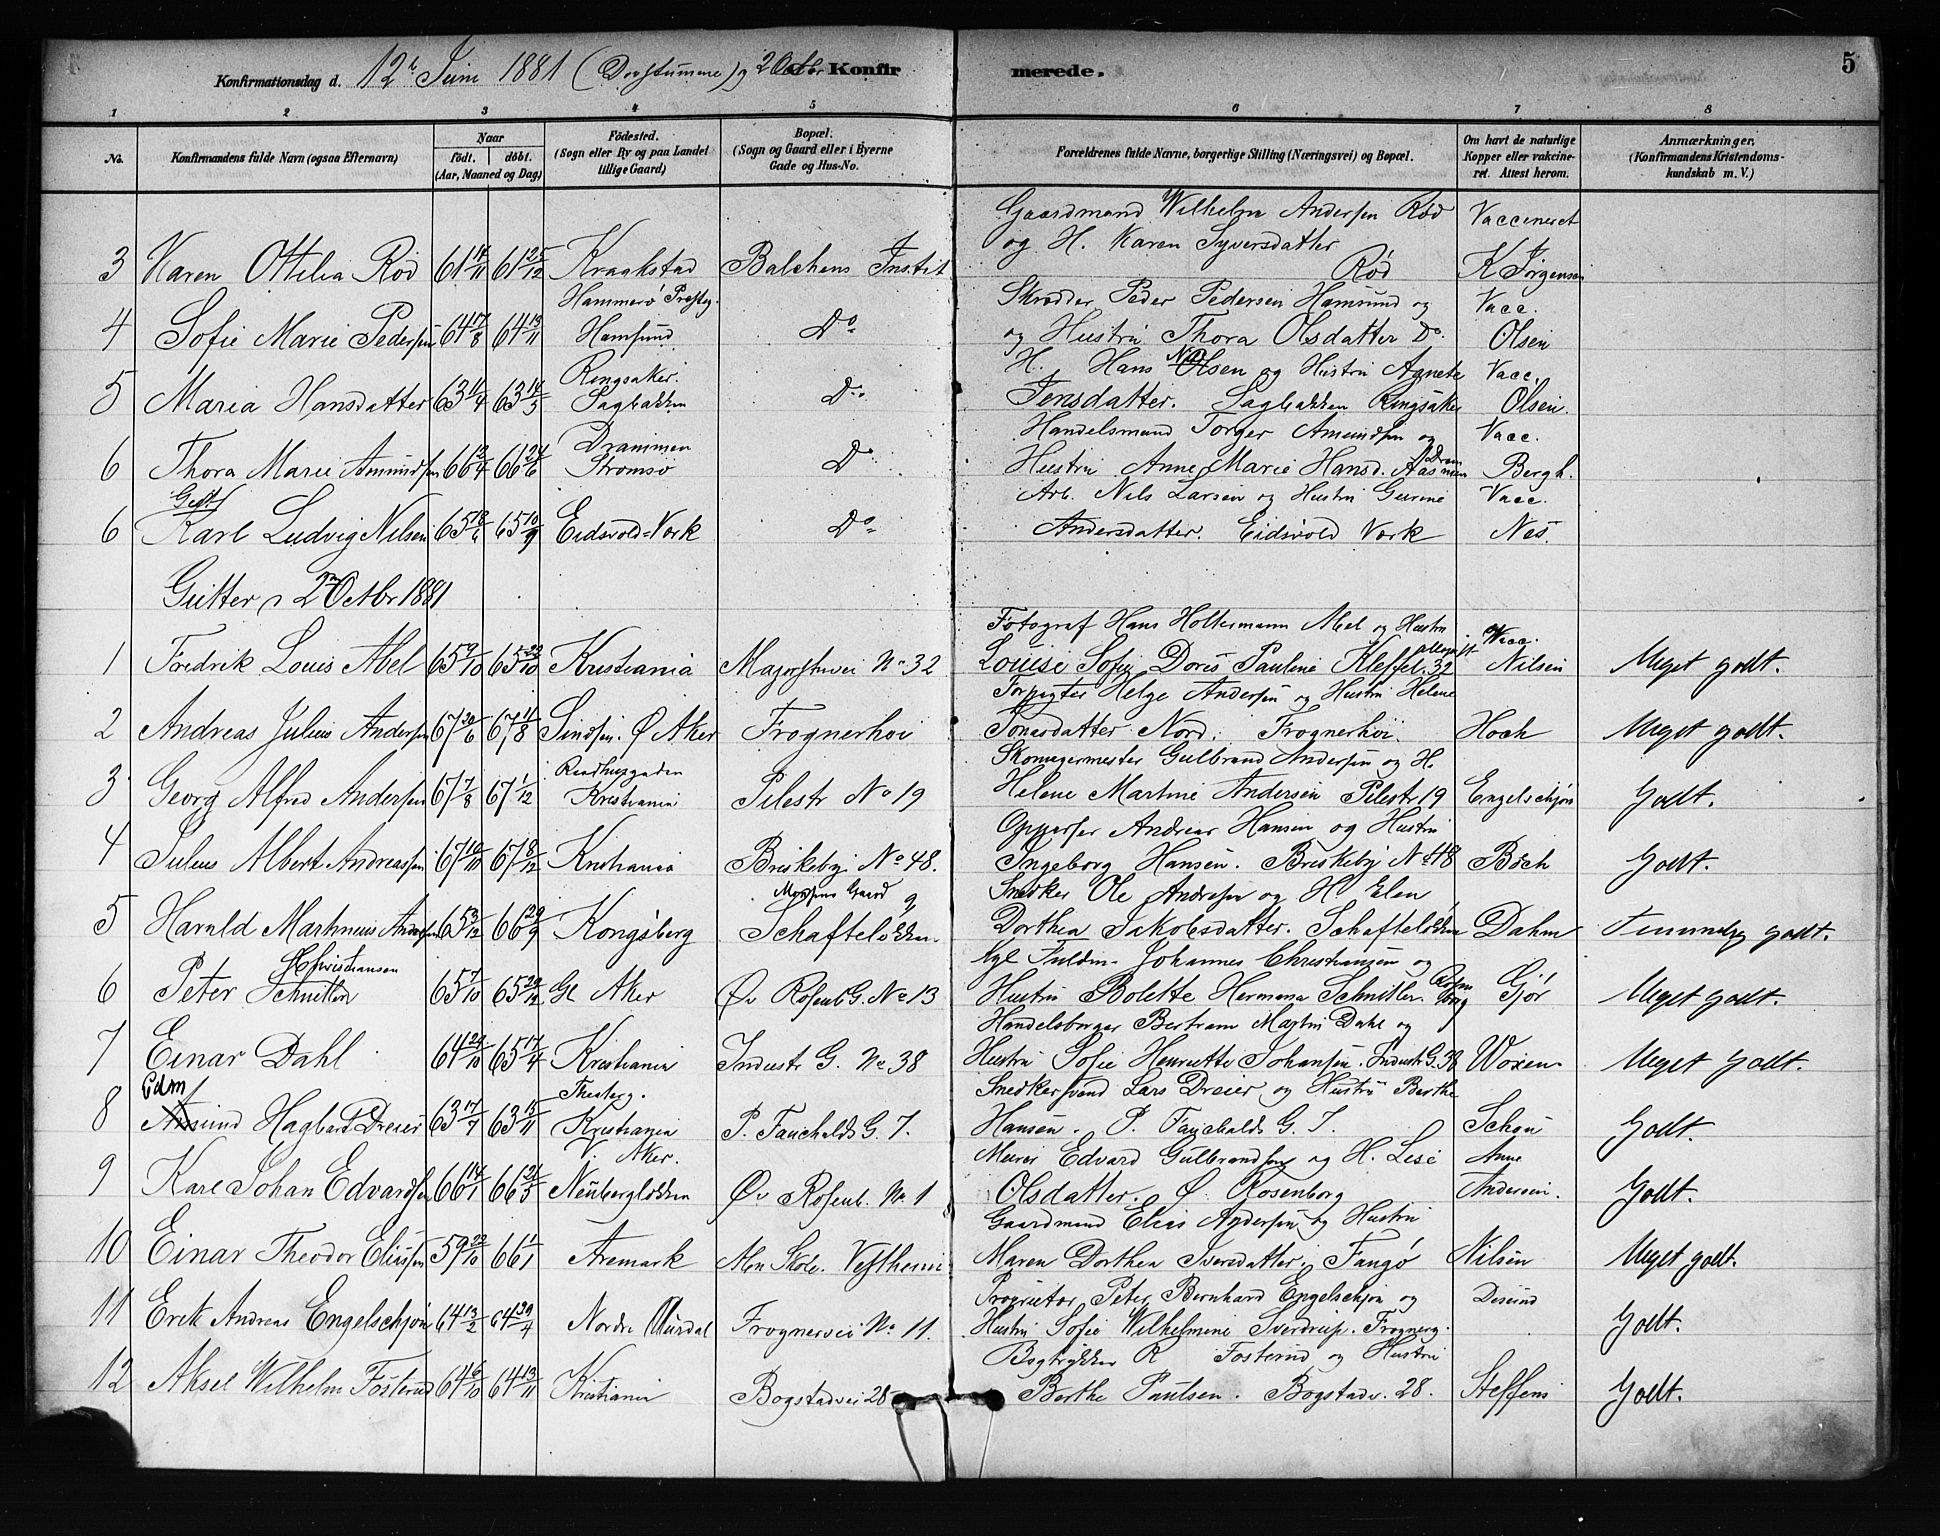 Konfirmationsdag d. 12te Juni 1881 (Døvstumme) og 2 Octbr Konfirmerede. 5
1 2 3 4 5 6 7 8
No. Konfirmandens fulde Navn (ogsaa Efternavn) Naar født. døbt. (Aar, Maaned og Dag) Fødested. (Sogn eller By og paa Landet tillige Gaard) Bopæl. (Sogn og Gaard eller i Byerne Gade og Hus-No. Forældrenes fulde Navne, borgerlige Stilling (Næringsvei) og Bopæl. Om havt de naturlige Kopper eller vakcineret. Attest herom. Anmærkninger, (Konfirmandens Kristendomskundskab m. V.)
Gaardmand Wilhelm Andersen Rød Vaccineret
og H. Karen Syversdatter
3 Karen Ottilia Rød 61 14/11 61 25/12 Kraakstad Balchens Instit Rød K Jørgensen
Hammerø Præsteg. Skrædder Peder Pedersen Hamsund og Vacc.
4 Sofie Marie Pedersen 64 17/8 64 13/11 Hamsund Do og Hustru Thora Olsdatter Do. Olsen
Ringsaker. H. Hans Olsen og Hustru Agnete Vacc.
5 Maria Hansdatter 63 11/4 63 14/5 Sagbakken Do. Jensdatter. Sagbakken Ringsaker Olsen.
Drammen Handelsmand Torger Amundsen og Vacc.
6 Thora Marie Amundsen 66 12/4 66 24/6 Strømsø Do Hustru Anne Marie Hansd. Aas Drammen Bergh.
Gutt Arb. Nils Larsen og Hustru Gurine Vacc.
6 Karl Ludvig Nilsen 65 18/6 65 10/9 Eidsvold-Verk Do Andersdatter. Eidsvold Verk Nes.
Gutter 2 Octbr 1881
Fotograf Hans Holtermann Abel og Hustru Vacc.
1 Fredrik Louis Abel 65 9/10 65 22/10 Kristiania Majorstuvei No 32 Louise Sofie Doris Pauline Kleffel. 32 Nilsen Meget godt.
Forpagter Helge Andersen og Hustru Helene
2 Andreas Julius Andersen 67 20/6 67 11/8 Sinsen. Ø Aker Frognerhøi Jonasdatter Nord. Frognerhøi. Hoch Meget godt.
Raadhusgaden Skomagermester Gulbrand Andersen og H.
3 Georg Alfred Andersen 67 7/8 67 1/12 Kristiania Pilestr No 19 Helene Martine Andersen Pilestr 19 Engelschjøn Godt.
Oppasser Andreas Hansen og Hustru
4 Julius Albert Andreassen 67 14/10 67 8/12 Kristiania Briskeby No 48. Ingeborg Hansen. Briskeby No 48 Bóch Godt.
Snedker Ole Andresen og H. Elen
5 Harald Martinius Andersen 65 3/12 66 29/9 Kongsberg Schafteløkken. Dorthea Jakobsdatter. Schafteløkken Dahm Temmelig godt.
Christiansen Johannes Christiansen og
6 Peter Schnitler 65 7/10 65 22/12 Gl Aker Øv Rosenb G. No 13 Hustru Bolette Hermana Schnitler. Rosenborg Gjør Meget godt.
Handelsborger Bertram Martin Dahl og
7 Einar Dahl 64 22/10 65 17/4 Kristiania Industr G. No 38 Hustru Sofie Henriette Johansen. Industr G. 38 Woxen Meget godt.
Edm Theaterg. Snedkersvend Lars Dreier og Hustru Berthe
8 Amund Hagbart Dreier 63 17/7 63 15/11 Kristiania P. Fauchalds G. 7. Hansen. P. Fauchalds G. 7. Schøn Godt.
V. Aker. Murer Edvard Gulbrandsen og H. Lise Anne
9 Karl Johan Edvardsen 66 14/1 66 21/5 Neubergløkken Øv Rosenb. No 1 Olsdatter. Ø. Rosenborg Andersen. Godt.
Gaardmand Elias Andersen og Hustru
10 Einar Theodor Eliasen 59 22/10 66 1/1 Aremark Alm Skole. Vestheim Maren Dorthea Iversdatter, Tangø Nilsen Meget godt.
Proprietær Peter Bernhard Engelschjøn og
11 Erik Andreas Engelschjøn 64 13/2 64 29/4 Nordre Aurdal Frognervei No 11. Hustru Sofie Wilhelmine Sverdrup. Frognerg. Godt.
Bogtrykker R Fosterud og Hustru
12 Aksel Wilhelm Fosterud 64 6/10 64 13/11 Kristiania Bogstadvei 28 Berthe Paulsen. Bogstadv. 28. Steffens Godt.